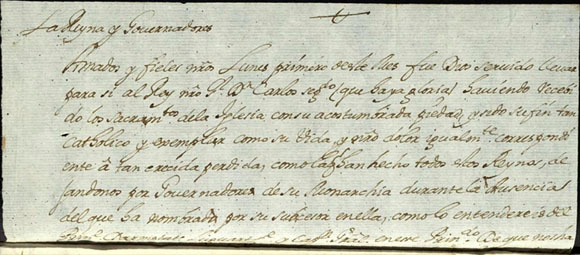 La Reyna y Governadores
Amados y fieles nros Lunes primero deste Mes fue Dios servido llevar
para si al Rey nro Sr Dn Carlos segdo (que haya gloria) haviendo recebi
do los sacramtos de la Iglesia con su acostumbrada piedad, y sido su fin tan
Catholico y exemplar como su Vida, y nro dolor igualmte correspondi
ente à tan crecida perdida, como la han hecho todos estos Reynos, de
jandonos por Governadores de su Monarchia durante la Ausencia
del que ha nombrado por su subcesor en ella, como lo entendereis del